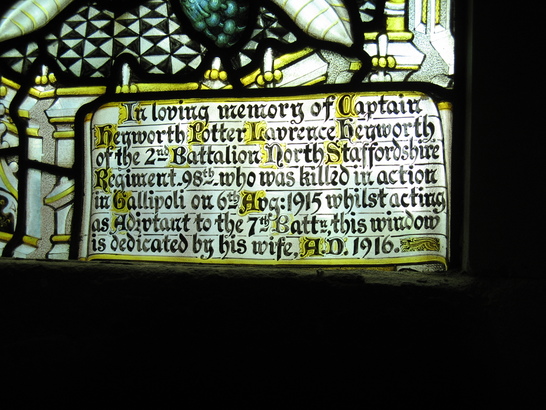 In loving memory of Captain
Heyworth Potter Lawrence Heyworth
of the 2nd Battalion North Staffordshire
Regiment. 98th who was killed in action
in Gallipoli on 6th Aug: 1915 whilst acting
as Adjutant to the 7th Battn, this window
is dedicated by his wife, A.D. 1916.